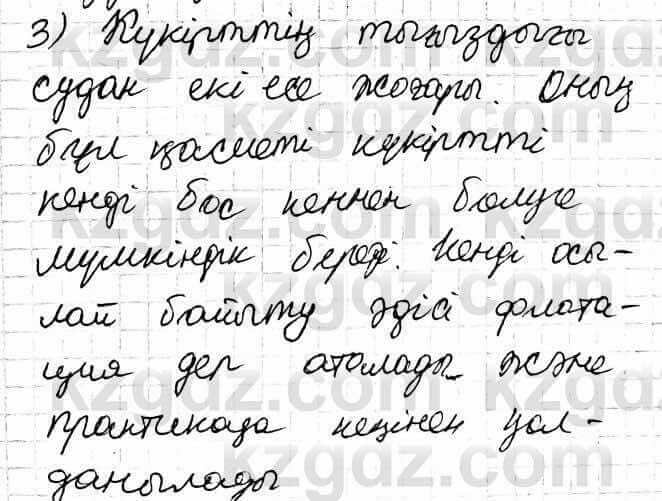 3) Күкірттің тығыздығы
судан екі есе жоғары. Оның
бұл қасиеті күкіртті
кенді бос кеннен бөлуге
мүмкіндік береді. Кенді осы-
лай байыту әдісі флота-
ция деп аталады және
практикада кеңінен қол-
данылады
kzgdz.com